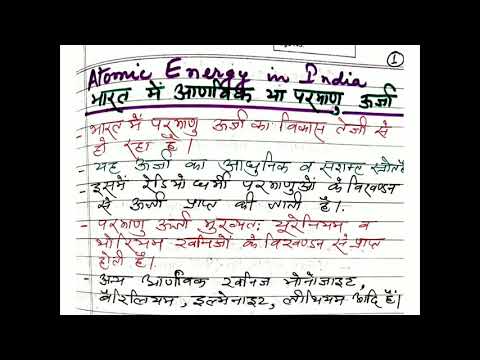 1
Atomic Energy in India
भारत में आणविक या परमाणु ऊर्जा
- भारत में परमाणु ऊर्जा का विकास तेजी से
हो रहा है।
- यह ऊर्जा का आधुनिक व सशक्त स्रोत है
- इसमें रेडियोधर्मी परमाणुओं के विखण्डन
से ऊर्जा प्राप्त की जाती है।
- परमाणु ऊर्जा मुख्यतः यूरेनियम व
थोरियम खनिजों के विखण्डन से प्राप्त
होती है।
- अन्य आणविक खनिज मोनोजाइट,
बैरिलियम, इल्मेनाइट, लीथियम आदि हैं।